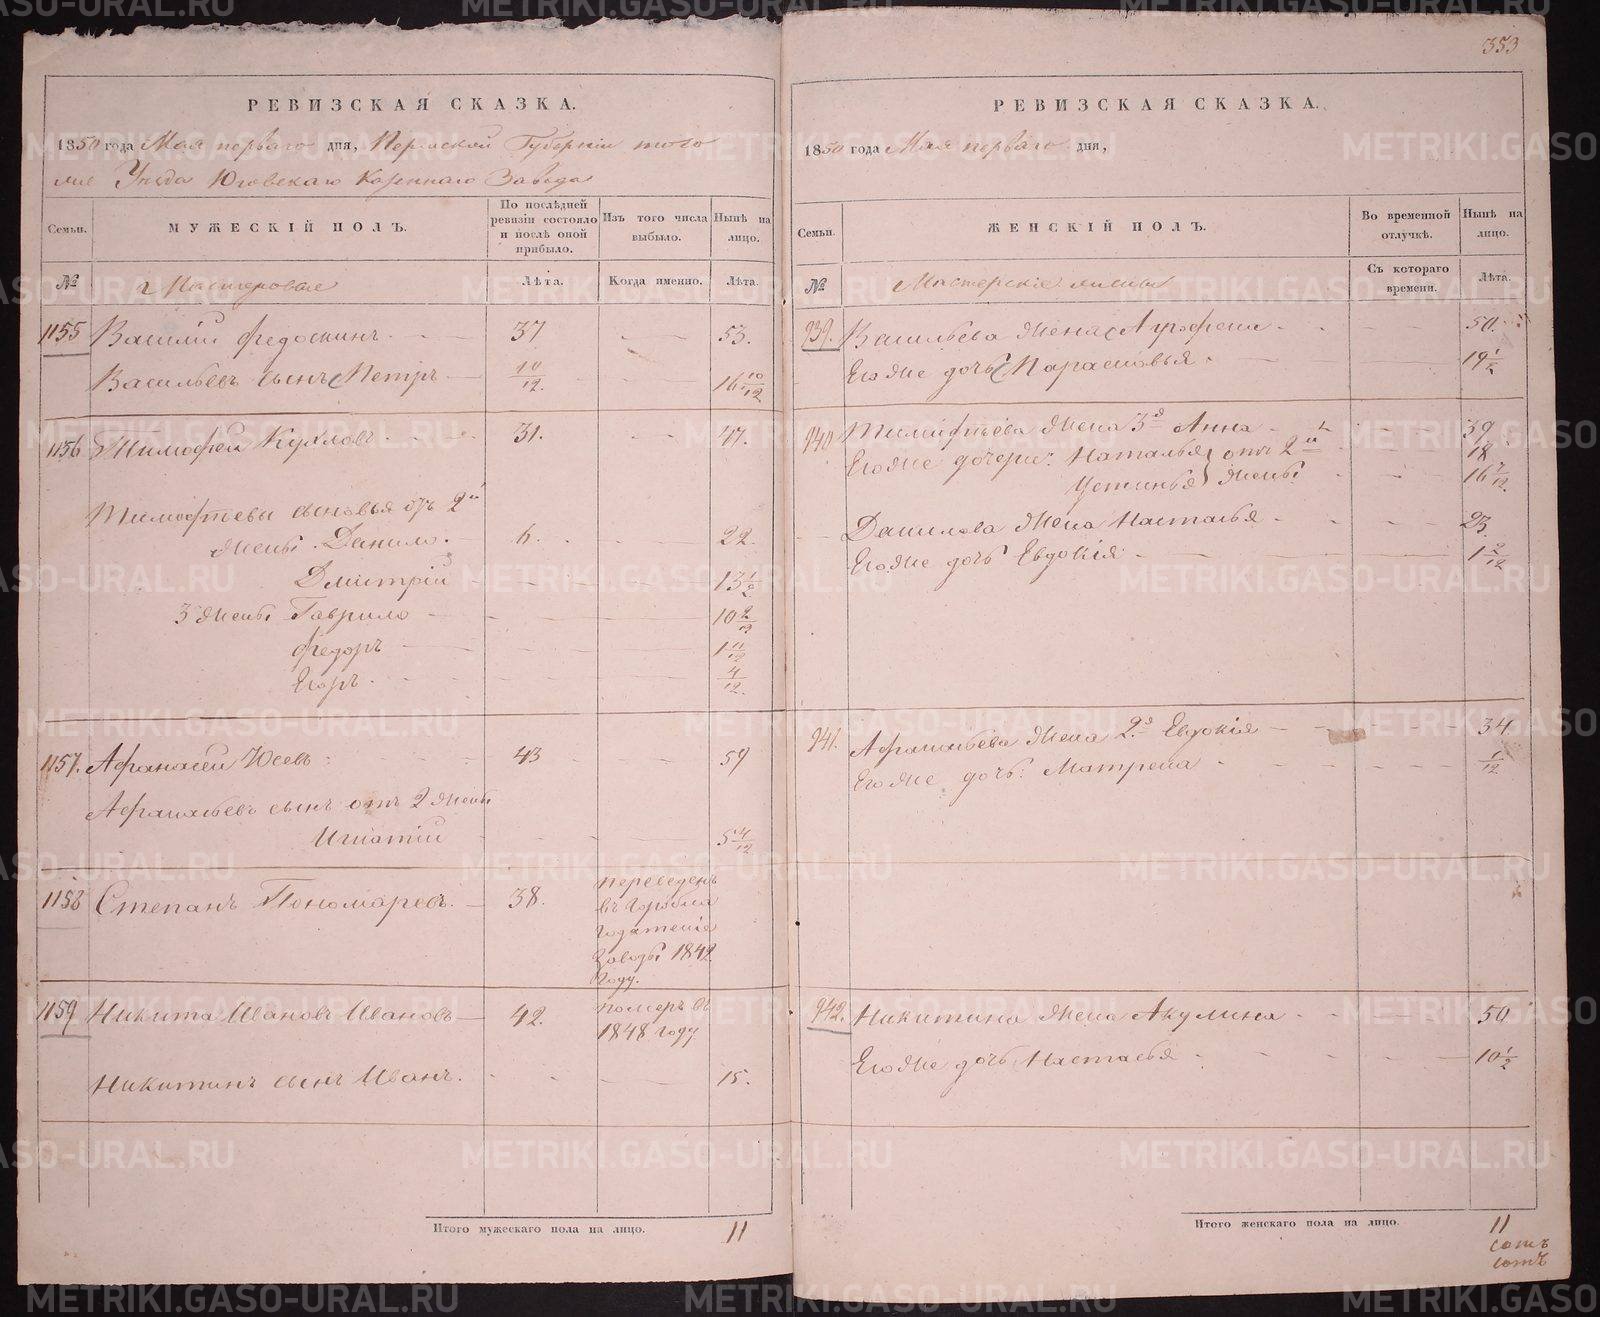 353
РЕВИЗСКАЯ СКАЗКА.
1850 года Мая перваго дня, Пермской Губерніи того
же Уѣзда Юговскаго Казеннаго Завода
Семьи.
МУЖЕСКІЙ ПОЛЪ.
По послѣдней ревизіи состояло и послѣ оной прибыло.
Изъ того числа выбыло.
Нынѣ на лицо.
№
Мастеровые
Лѣта.
Когда именно.
Лѣта.
1155 Василій Федоскинъ 37 53.
Васильевъ сынъ Петръ 10/12. 16 10/12
1156 Тимофей Кухловъ 31. 47.
Тимофѣевы сыновья отъ 2й
жены Данило. 6. 22.
Дмитрій 13 1/2
3 жены Гаврило 10 2/12
Федоръ 1 11/12
Егоръ 4/12.
1157. Афанасей Юсевъ 43 59
Афанасьевъ сынъ отъ 2 жены
Игнатій 5 4/12
1158 Степанъ Пономаревъ. 38. переведенъ
въ
заводы 1842
году.
1159 Никита Ивановъ Ивановъ 42. померъ въ
1848 году
Никитинъ сынъ Иванъ. 15.
Итого мужескаго пола на лицо. 11
РЕВИЗСКАЯ СКАЗКА.
1850 года Мая перваго дня,
Семьи.
ЖЕНСКІЙ ПОЛЪ.
Во временной отлучкѣ.
Нынѣ на лицо.
№
Мастерскіе жены
Съ котораго времени.
Лѣта.
939. Васильева жена Агрофена 50.
Его же дочь Парасковья 19 1/2
940 Тимофѣева жена 3я Анна 39
Его же дочери: Наталья отъ 2й 18
Устинья жены 16 7/12.
Данилова жена Настасья 23.
Его же дочь Евдокія 1 2/12
941. Афанасьева жена 2я Евдокія 34.
Его же дочь: Матрена 1/12
942. Никитина жена Акулина 50
Его же дочь Настасья 10 1/2
Итого женскаго пола на лицо. 11